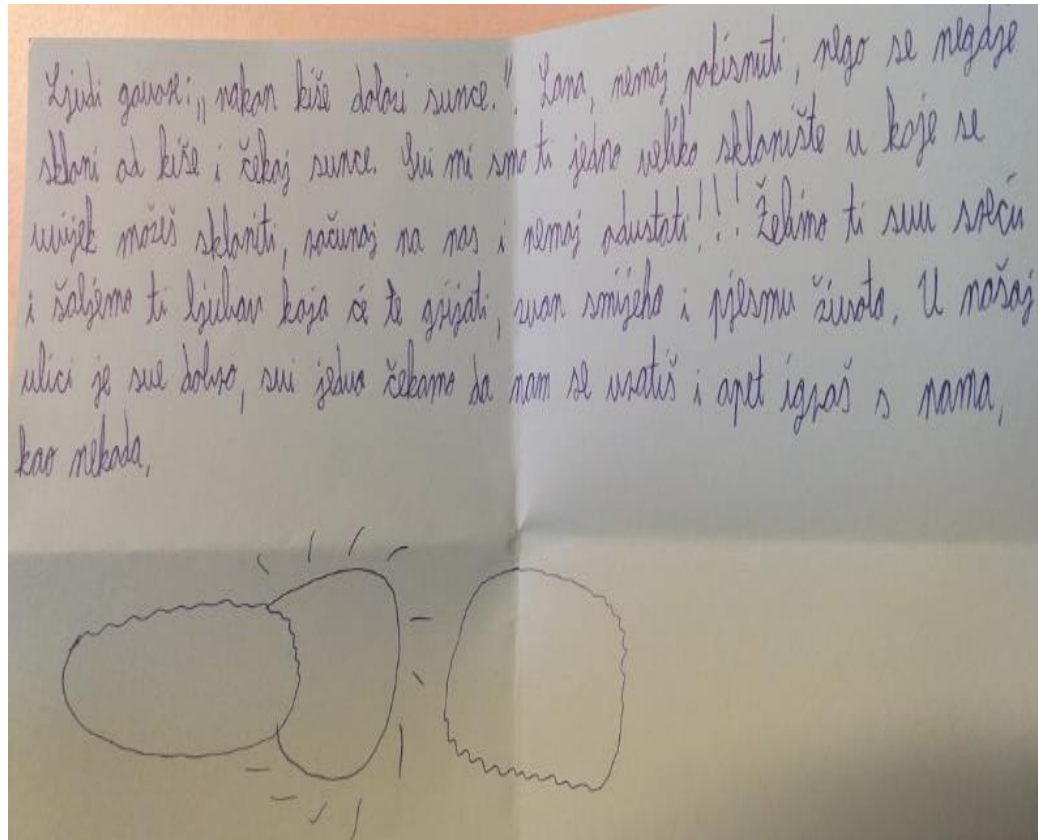 Ljudi govore: „nakon kiše dolazi sunce.". Lana, nemoj pokisnuti, nego se negdje
skloni od kiše i čekaj sunce. Svi mi smo ti jedno veliko sklonište u koje se
uvijek možeš skloniti, računaj na nas i nemoj odustati!!! Želimo ti svu sreću
i šaljemo ti ljubav koja će te grijati, zvon smijeha i pjesmu života. U našoj
ulici je sve dobro, svi jedva čekamo da nam se vratiš i opet igraš s nama,
kao nekada,